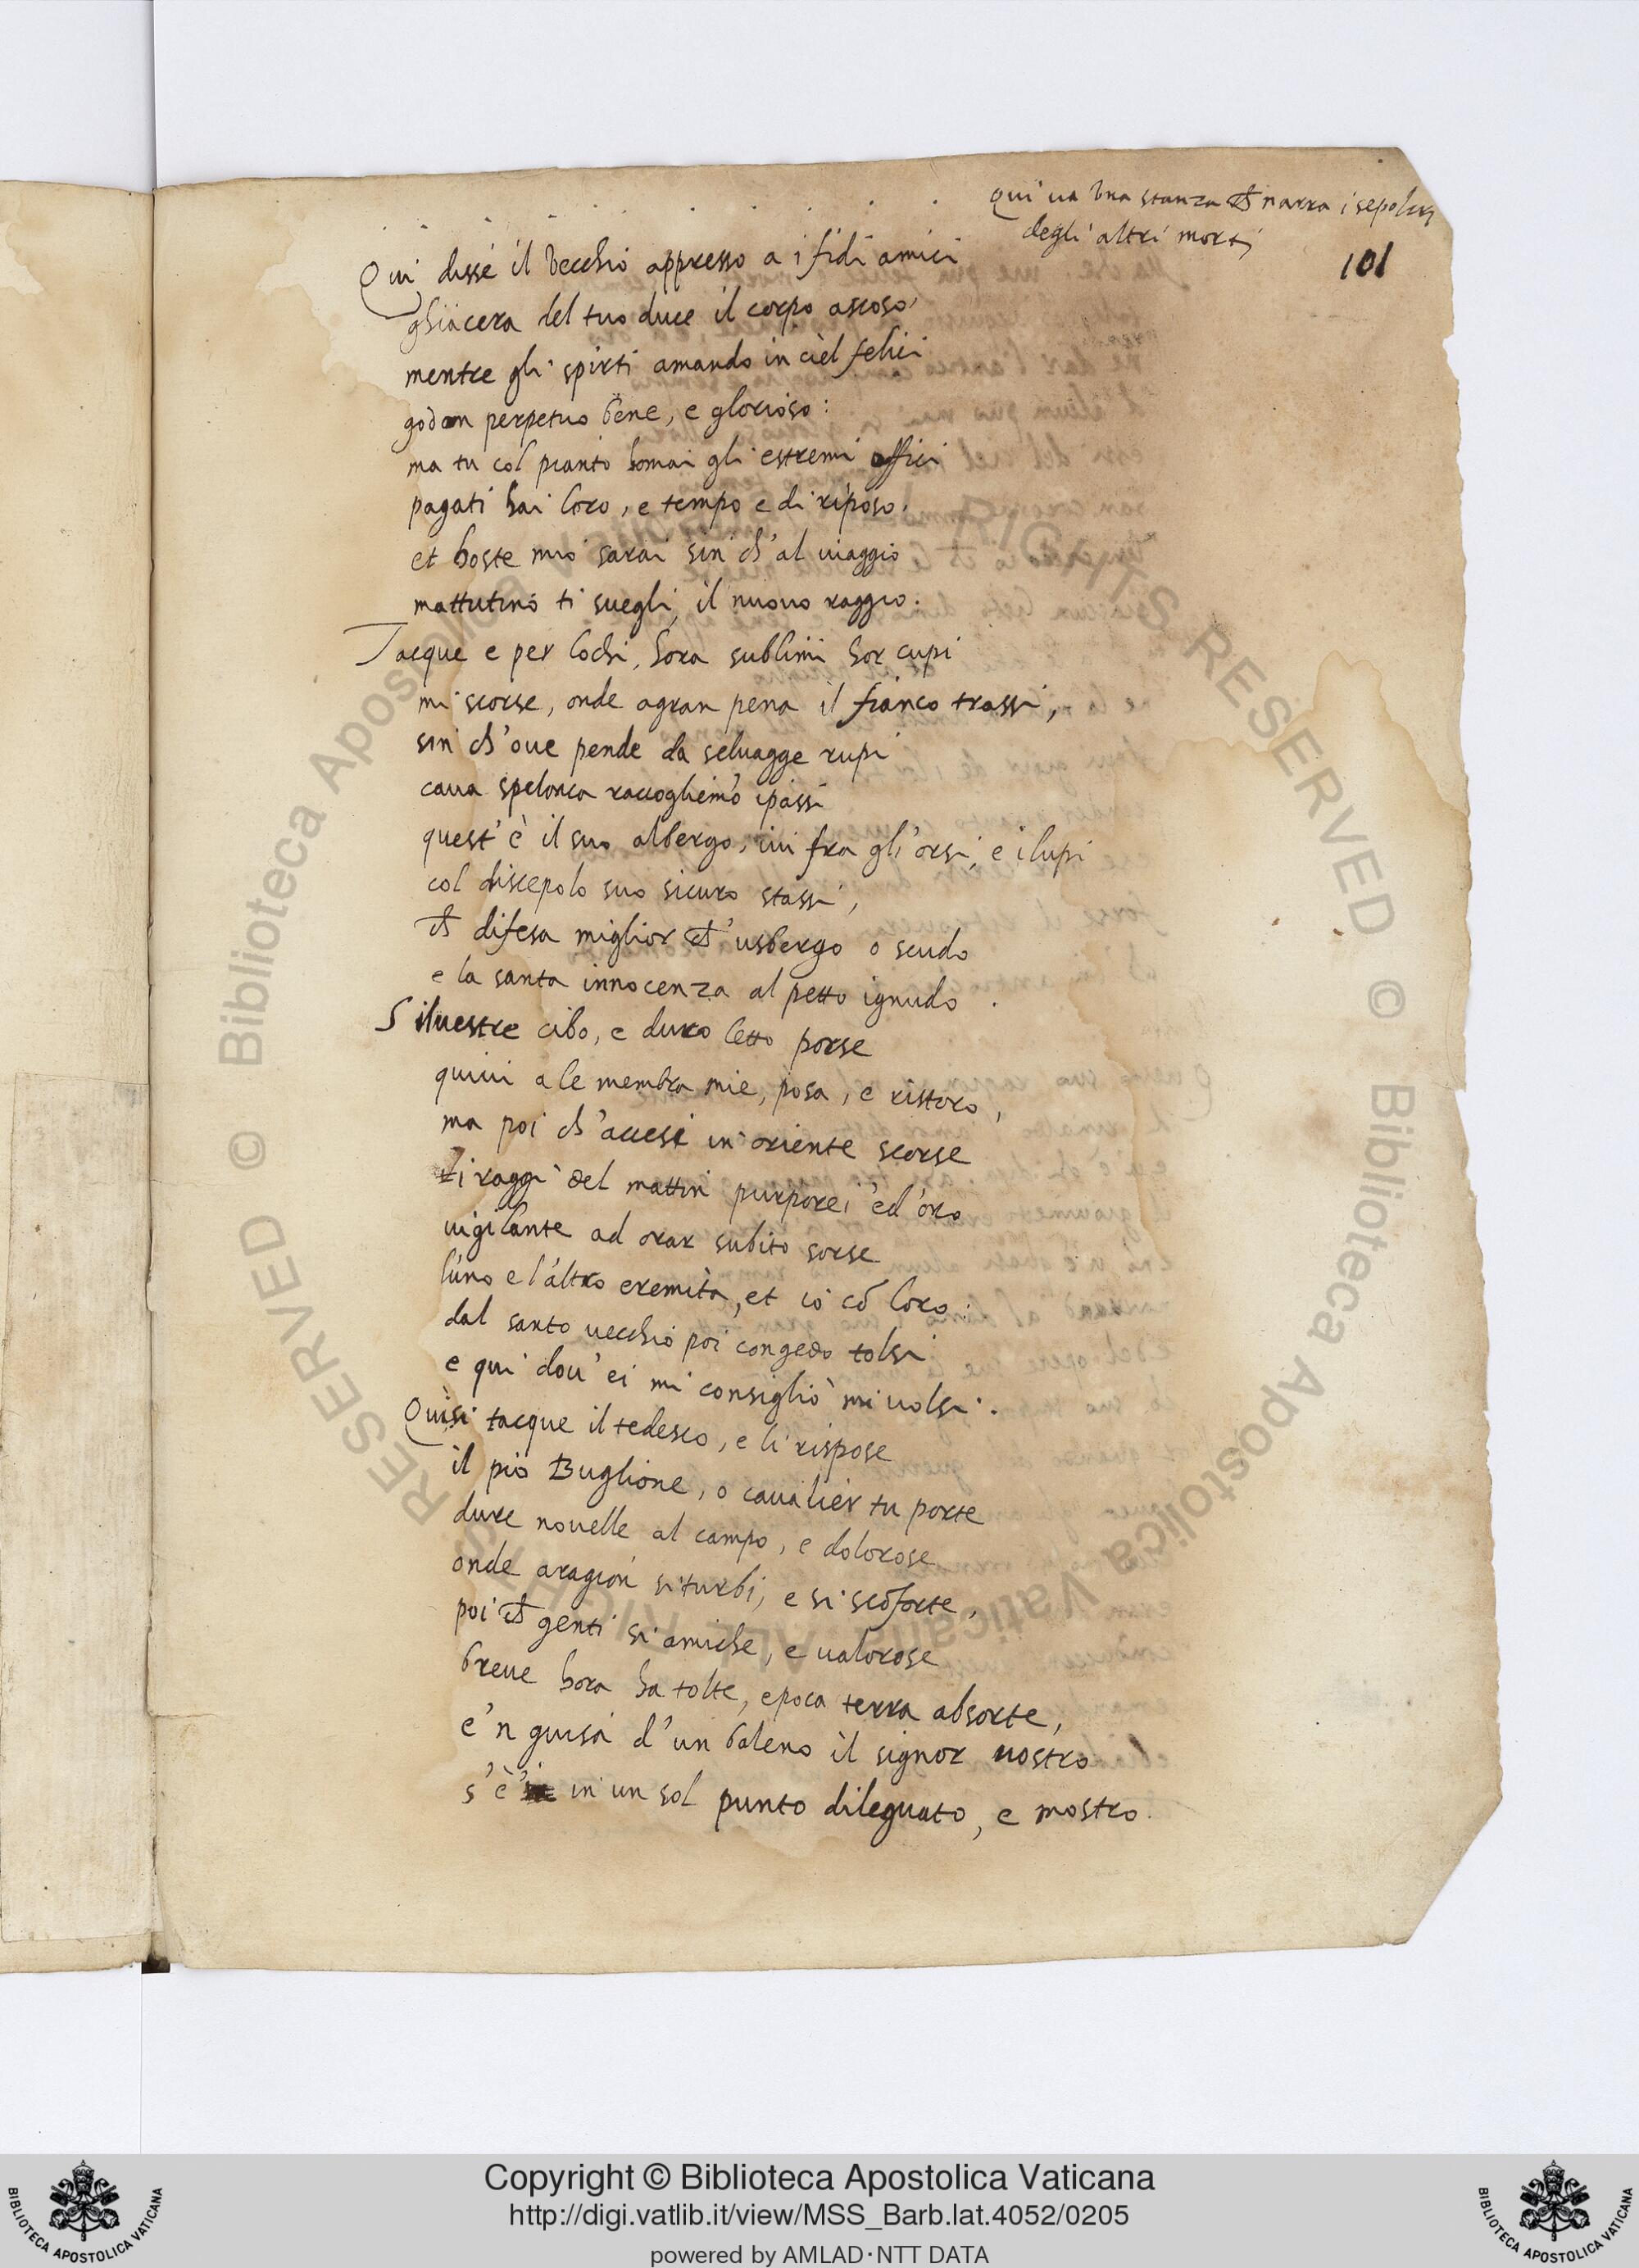 Qui ua una stanza ch narra i sepolcri
degli altri morti
101
Qui disse il vecchio appresso a i fidi amici
ghiacera del tuo duce il corpo ascoso,
mentre gli spirti amando in ciel felici
godon perpetuo bene, e glorioso:
ma tu col pianto homai gli estremi offici
pagati hai loro, e tempo e di riposo.
et hoste mio sarai sin ch'al uiaggio
mattutino ti suegli il nuouo raggio.
Tacque e per lochi, hora sublimi hor cupi
mi scorse, onde a gran pena il fianco trassi,
sin ch'oue pende da seluagge rupi
caua spelonca raccogliemo i passi
quest'è il suo albergo, iui fra gl'orsi, e i lupi
col discepolo suo sicuro stassi,
ch difesa miglior ch'usbergo o scudo
e la santa innocenza al petto ignudo.
Siluestre cibo, e duro letto porse
quiui a le membra mie, posa, e ristoro,
ma poi ch'accesi in oriente scorse
i raggi del mattin purporei ed'oro
uigilante ad orar subito sorse
l'uno e l'altro eremita, et io cō loro.
dal santo uecchio poi congedo tolsi
e qui dou'ei mi consigliò mi uolsi.
Qui si tacque il tedesco, e li rispose
il pio Buglione, o caualier tu porte
dure nouelle al campo, e dolorose
onde a ragion si turbi, e si scōforte,
poi ch genti si amiche, e ualorose
breue hora ha tolte, e poca terra absorte,
e'n guisa d'un baleno il signor uostro
s'è in un sol punto dileguato, e mostro.
Copyright © Biblioteca Apostolica Vaticana
http://digi.vatlib.it/view/MSS_Barb.lat.4052/0205
powered by AMLAD·NTT DATA